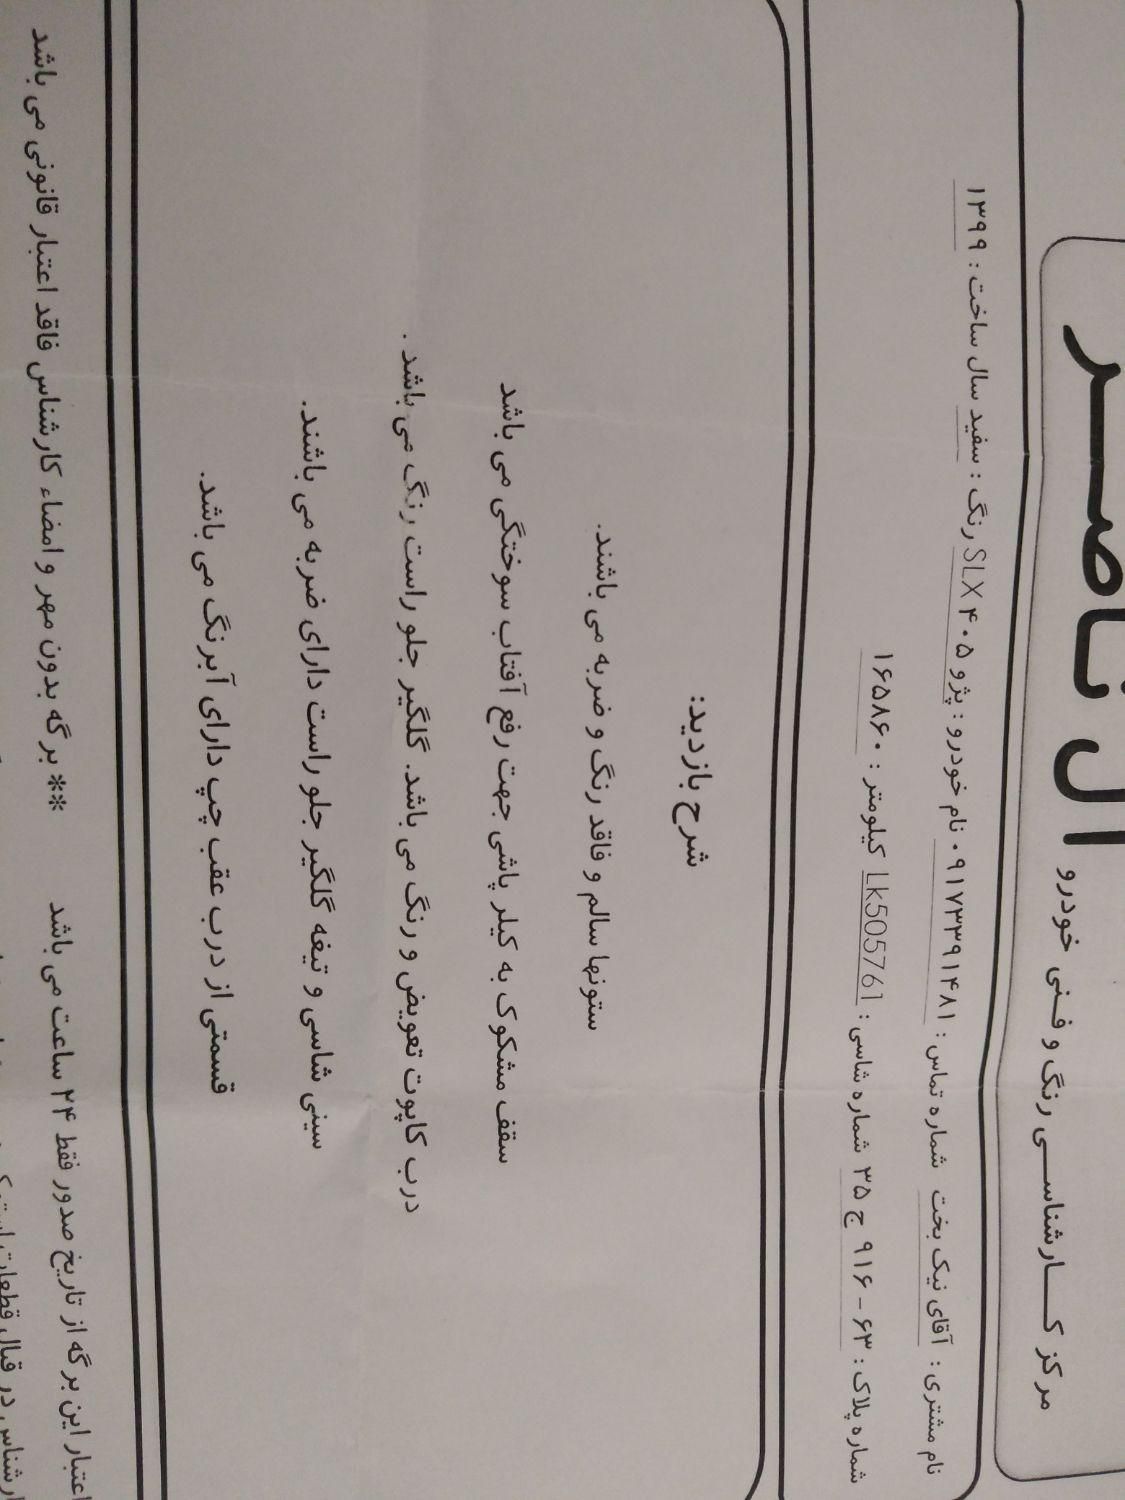 مرکز کــارشناســی رنگ و فـنی خودرو ال ناصــر
نام مشتری : آقای نیک بخت شماره تماس : ۰۹۱۷۳۳۹۱۴۸۱ نام خودرو : پژو ۴۰۵ SLX رنگ : سفید سال ساخت : ۱۳۹۹
شماره پلاک : ۶۳ - ۹۱۶ ج ۳۵ شماره شاسی : Lk505761 کیلومتر : ۱۶۵۸۶۰
شرح بازدید:
ستونها سالم و فاقد رنگ و ضربه می باشند.
سقف مشکوک به کیلر پاشی جهت رفع آفتاب سوختگی می باشد
درب کاپوت تعویض و رنگ می باشد. گلگیر جلو راست رنگ می باشد .
سینی شاسی و تیغه گلگیر جلو راست دارای ضربه می باشند.
قسمتی از درب عقب چپ دارای آبرنگ می باشد.
اعتبار این برگه از تاریخ صدور فقط ۲۴ ساعت می باشد ** برگه بدون مهر و امضاء کارشناس فاقد اعتبار قانونی می باشد